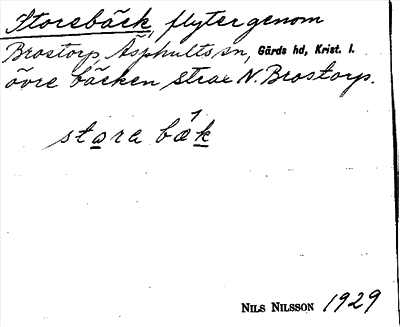 Storebäck, flyter genom
Brostorp, Åsphults sn, Gärds hd, Krist. l.
övre bäcken strax N. Brostorp.
stora bæ´k
NILS NILSSON 1929